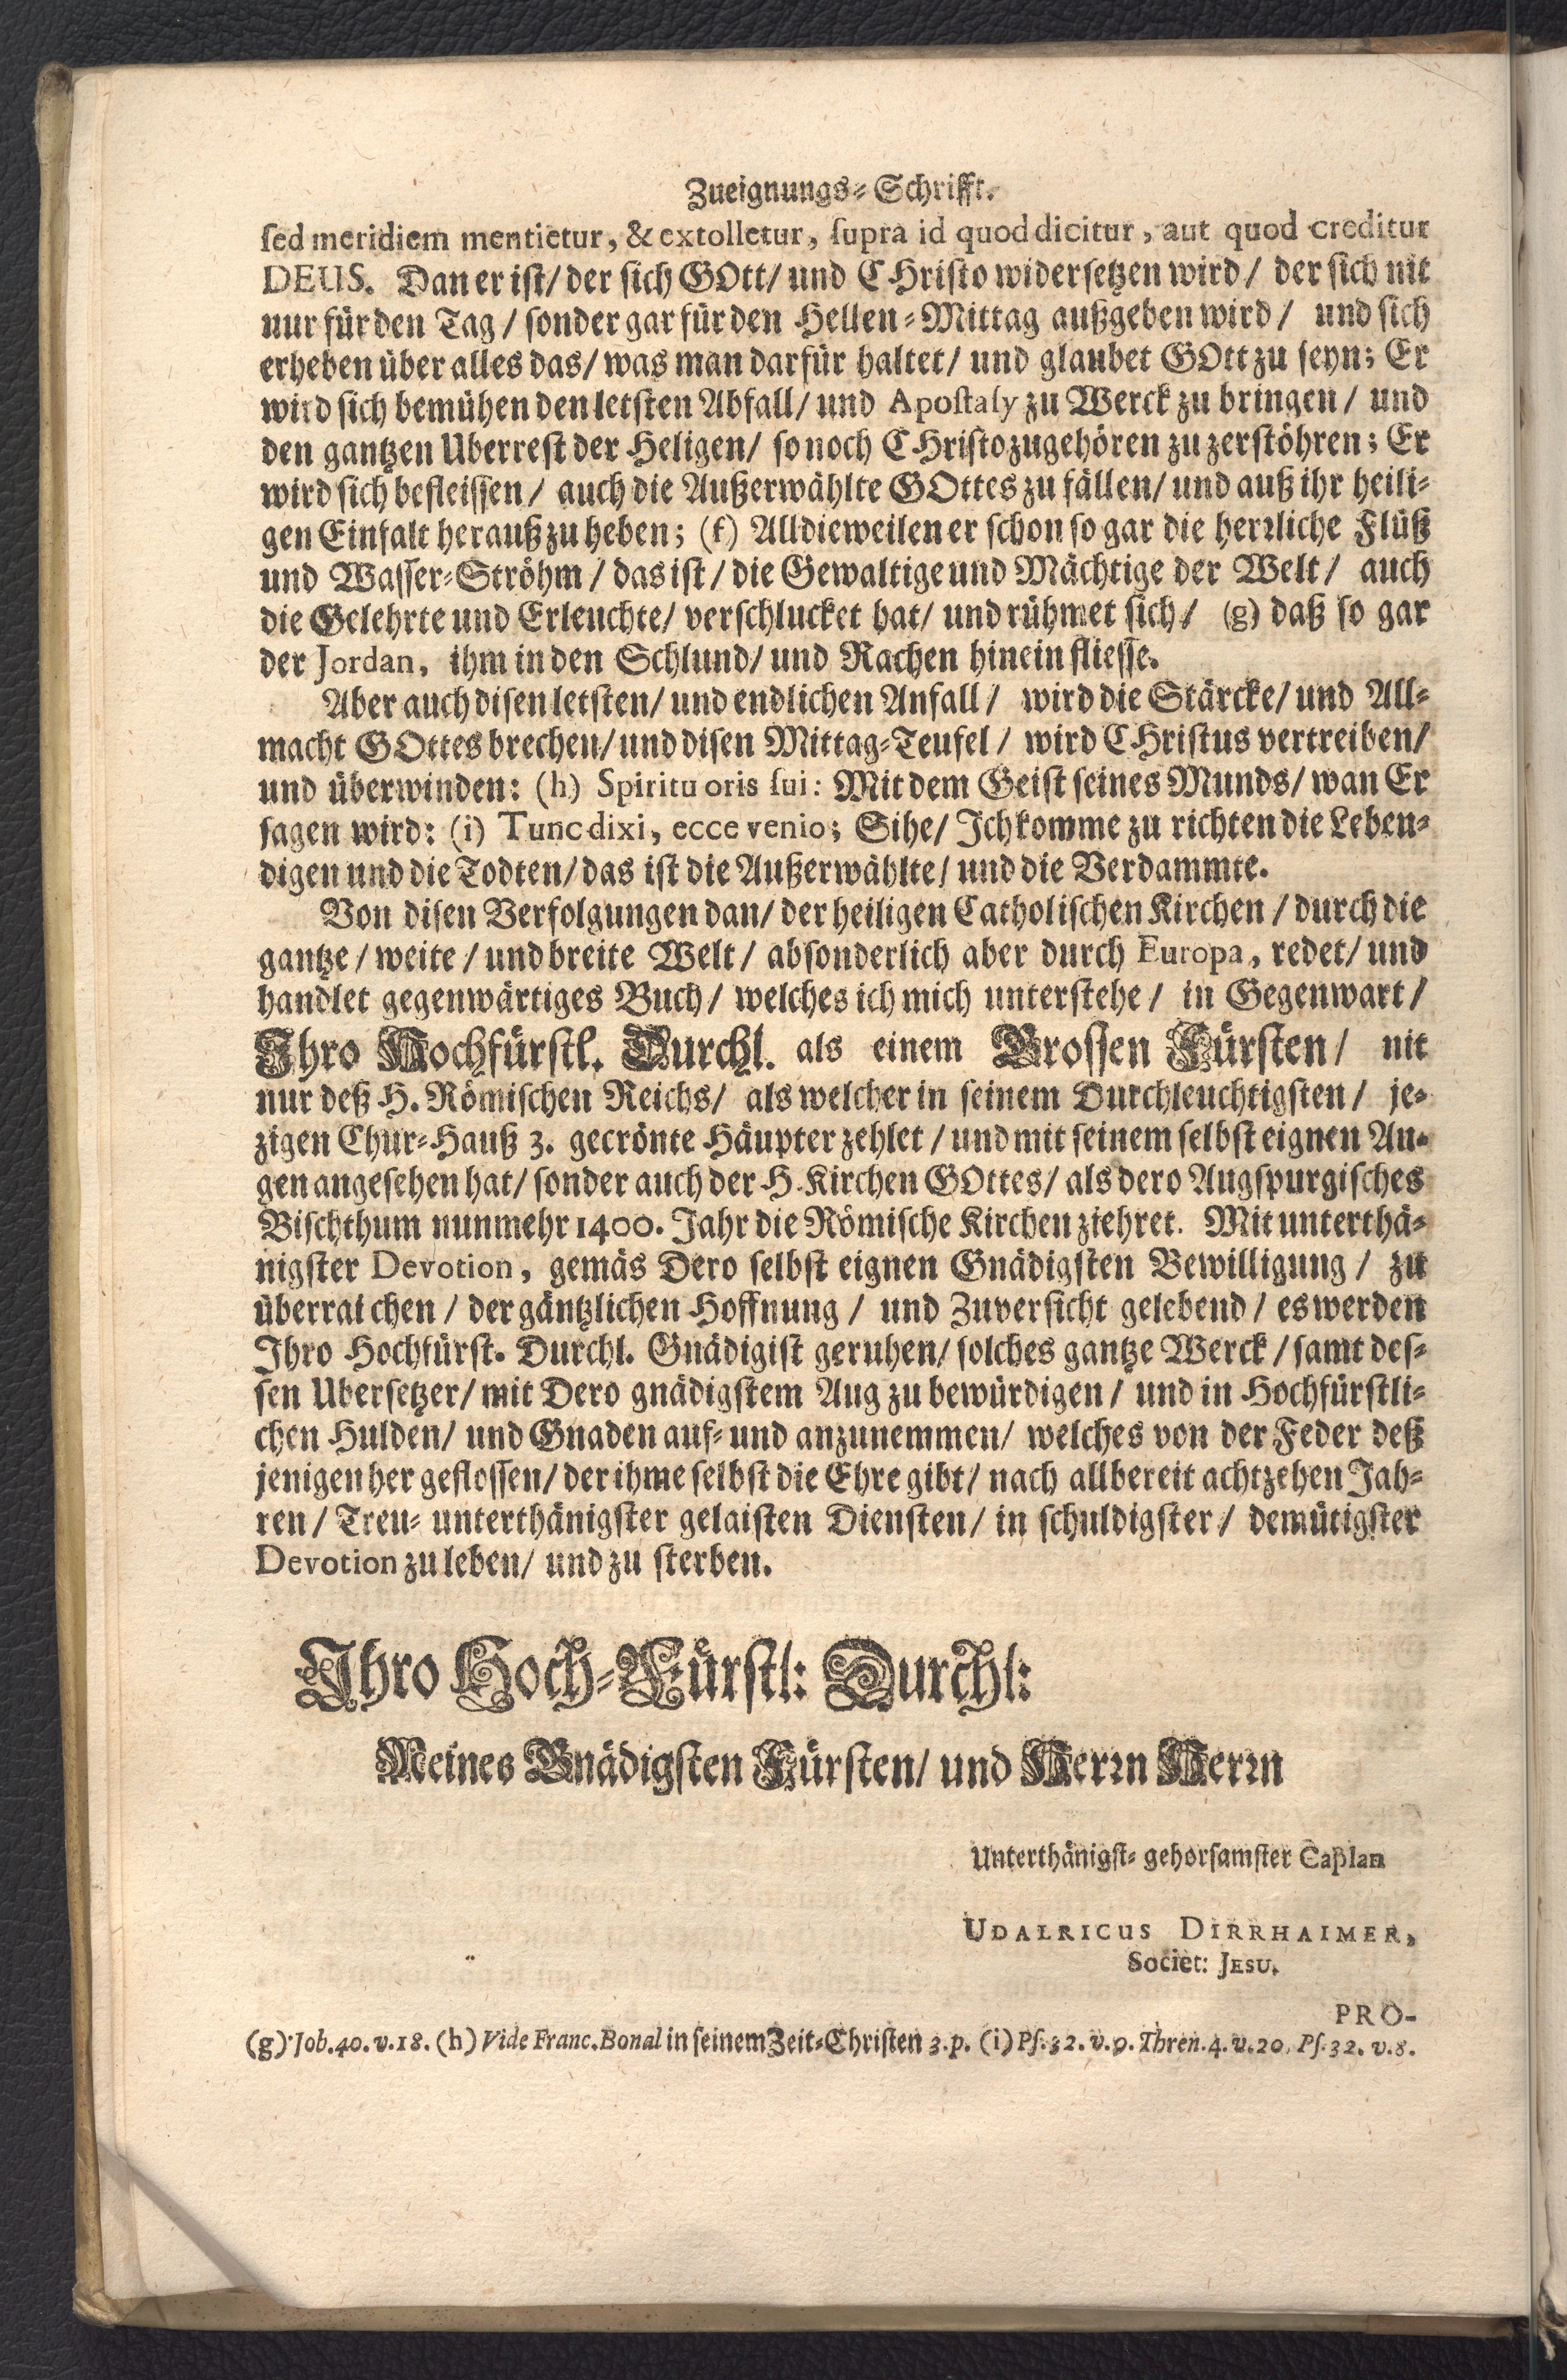 Zueignungs-Schrifft.
sed meridiem mentietur, & extolletur, supra id quod dicitur, aut quod creditur
DEUS. Dan er ist/ der sich GOtt/ und CHristo widersetzen wird/ der sich nit
nur für den Tag/ sonder gar für den Hellen-Mittag außgeben wird/ und sich
erheben über alles das/ was man darfür haltet/ und glaubet GOtt zu seyn; Er
wird sich bemühen den letsten Abfall/ und Apostaly zu Werck zu bringen/ und
den gantzen Uberrest der Heligen/ so noch CHristo zugehören zu zerstöhren; Er
wird sich befleissen/ auch die Außerwählte GOttes zu fällen/ und auß ihr heili-
gen Einfalt herauß zu heben; (f) Alldieweilen er schon so gar die herrliche Flüß
und Wasser-Ströhm/ das ist/ die Gewaltige und Mächtige der Welt/ auch
die Gelehrte und Erleuchte/ verschlucket hat/ und rühmet sich/ (g) daß so gar
der Jordan, ihm in den Schlund/ und Rachen hinein fliesse.
Aber auch disen letsten/ und endlichen Anfall/ wird die Stärcke/ und All-
macht GOttes brechen/ und disen Mittag-Teufel/ wird CHristus vertreiben/
und überwinden: (h) Spiritu oris sui: Mit dem Geist seines Munds/ wan Er
sagen wird: (i) Tunc dixi, ecce venio; Sihe/ Ich komme zu richten die Leben-
digen und die Todten/ das ist die Außerwählte/ und die Verdammte.
Von disen Verfolgungen dan/ der heiligen Catholischen Kirchen/ durch die
gantze/ weite/ und breite Welt/ absonderlich aber durch Europa, redet/ und
handlet gegenwärtiges Buch/ welches ich mich unterstehe/ in Gegenwart/
Ihro Hochfürstl. Durchl. als einem Grossen Fürsten/ nit
nur deß H. Römischen Reichs/ als welcher in seinem Durchleuchtigsten/ je-
zigen Chur-Hauß 3. gecrönte Häupter zehlet/ und mit seinem selbst eignen Au-
gen angesehen hat/ sonder auch der H. Kirchen GOttes/ als dero Augspurgisches
Bischthum nunmehr 1400. Jahr die Römische Kirchen ziehret. Mit unterthä-
nigster Devotion, gemäs Dero selbst eignen Gnädigsten Bewilligung/ zu
überraichen/ der gäntzlichen Hoffnung/ und Zuversicht gelebend/ es werden
Ihro Hochfürst. Durchl. Gnädigist geruhen/ solches gantze Werck/ samt des-
sen Ubersetzer/ mit Dero gnädigstem Aug zu bewürdigen/ und in Hochfürstli-
chen Hulden/ und Gnaden auf- und anzunemmen/ welches von der Feder deß
jenigen her geflossen/ der ihme selbst die Ehre gibt/ nach allbereit achtzehen Jah-
ren/ Treu- unterthänigster gelaisten Diensten/ in schuldigster/ demütigster
Devotion zu leben/ und zu sterben.
Ihro Hoch-Fürstl: Durchl:
Meines Gnädigsten Fürsten/ und Herrn Herrn
Unterthänigst-gehorsamster Caplan
UDALRICUS DIRRHAIMER,
Societ: JESU.
PRO-
(g) Job. 40. v. 18. (h) Vide Franc. Bonal in seinem Zeit-Christen 3. p. (i) Ps. 32. v. 9. Thren. 4. v. 20. Ps. 32. v. 8.